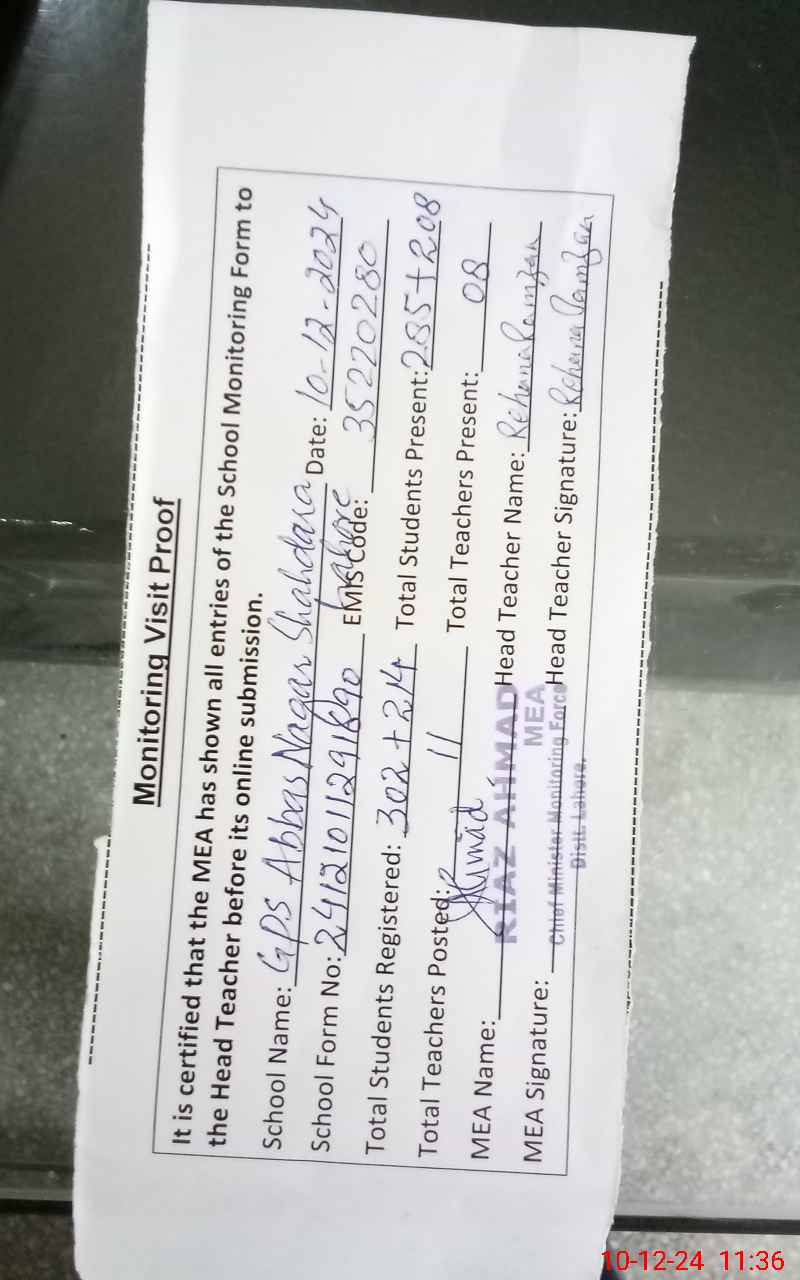 Monitoring Visit Proof
It is certified that the MEA has shown all entries of the School Monitoring Form to
the Head Teacher before its online submission.
School Name: GPS Abbas Nagar Shahdara Date: 10-12-2024
Lahore
School Form No: EMIS Code: 35220280
Total Students Registered: 302 + 214 Total Students Present: 285 + 208
Total Teachers Posted: 11 Total Teachers Present: 08
MEA Name: RIAZ AHMAD Head Teacher Name: Rehana Ramzan
MEA
MEA Signature: Chief Minister Monitoring Force Head Teacher Signature: Rehana Ramzan
Distt. Lahore.
10-12-24 11:36